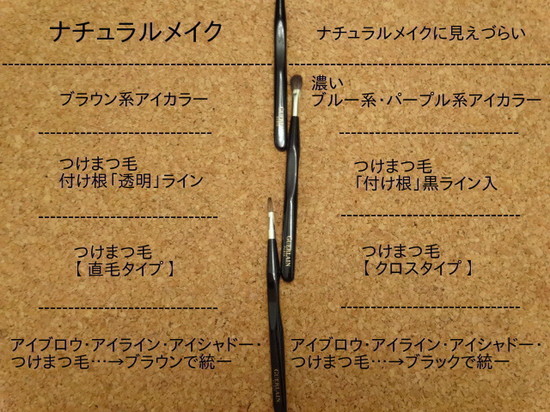 ナチュラルメイク
ナチュラルメイクに見えづらい
ブラウン系アイカラー
濃い
ブルー系・パープル系アイカラー
つけまつ毛
付け根「透明」ライン
つけまつ毛
「付け根」黒ライン入
つけまつ毛
【 直毛タイプ 】
つけまつ毛
【 クロスタイプ 】
アイブロウ・アイライン・アイシャドー・
つけまつ毛…→ブラウンで統一
アイブロウ・アイライン・アイシャドー・
つけまつ毛…→ブラックで統一
GUERLAIN
GUERLAIN